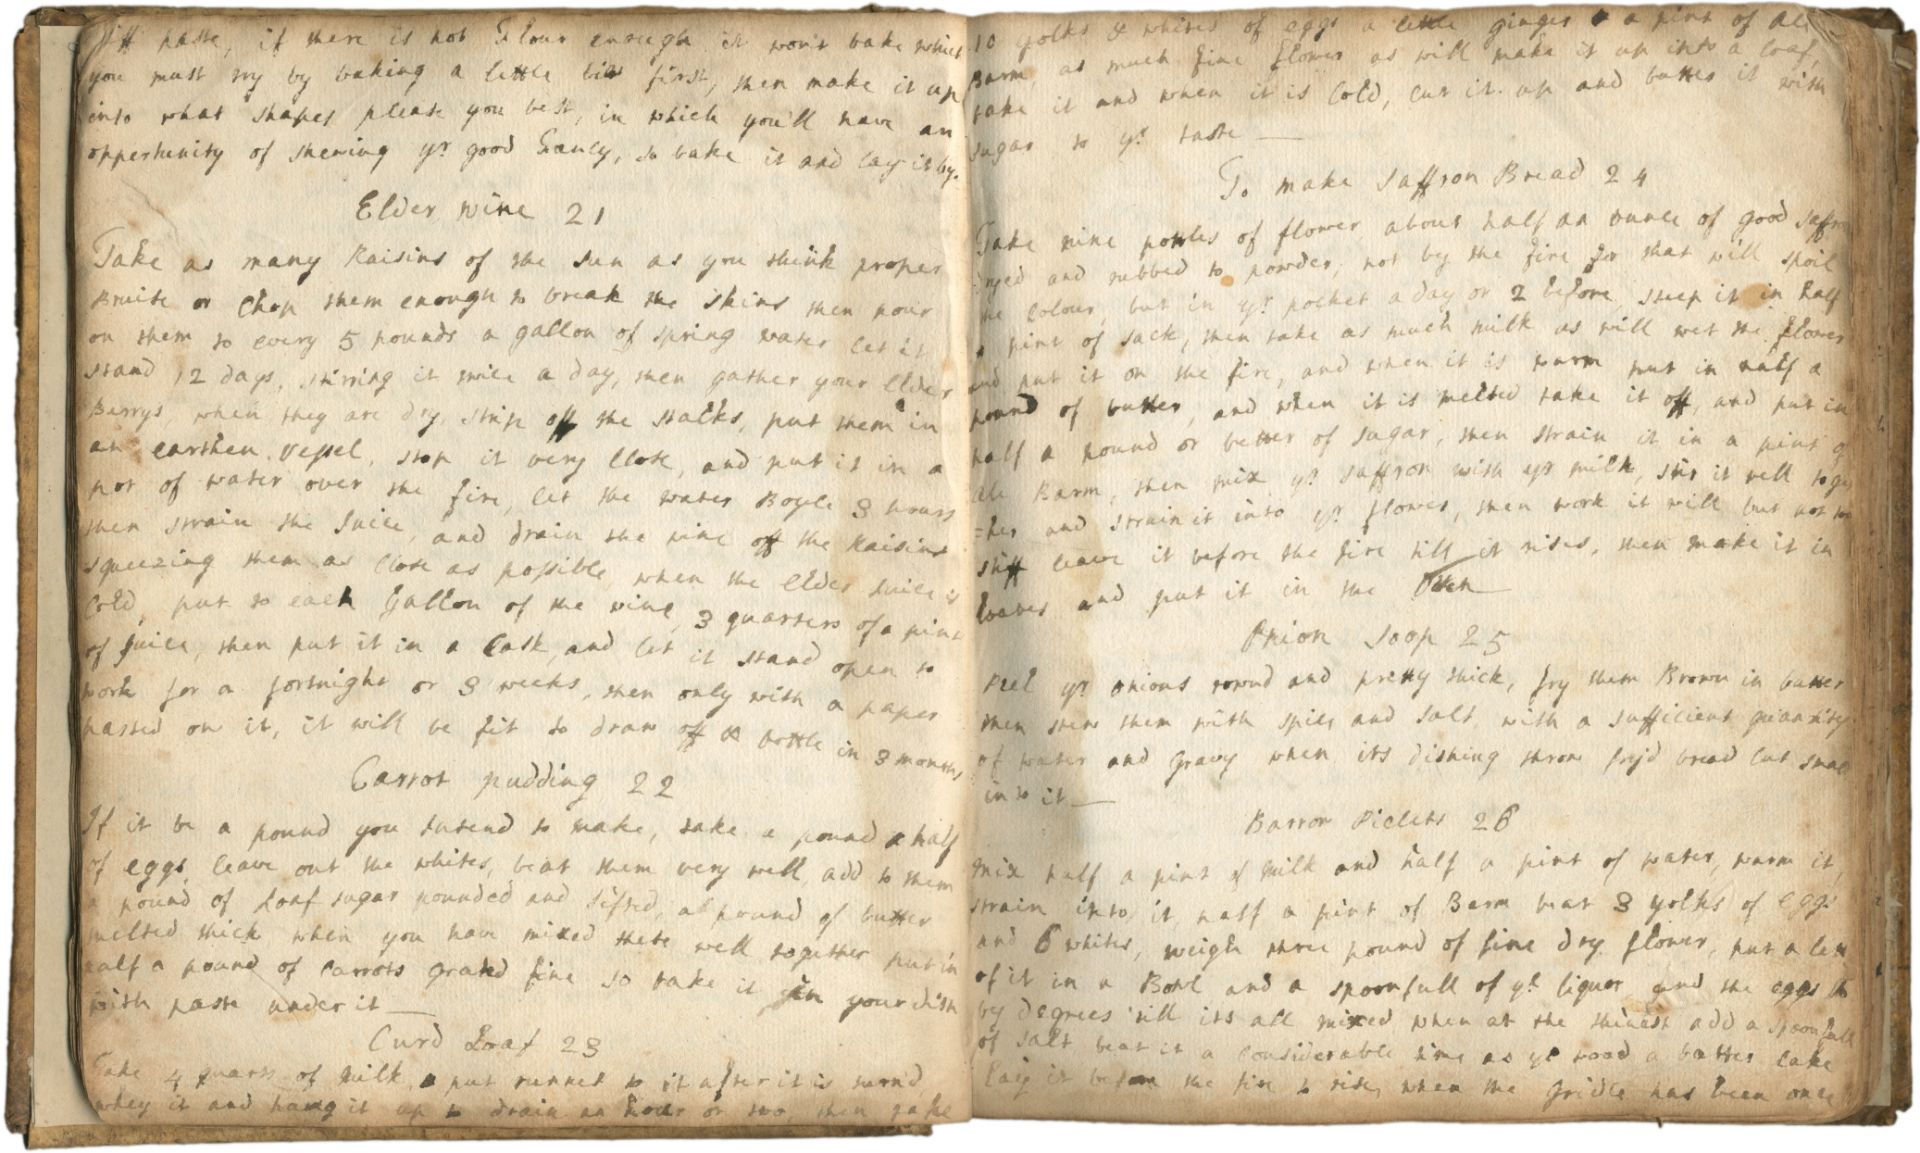 stiff paste, if there is not Flour enough it won't bake which
you must try by baking a little bit first, then make it up
into what shapes please you best, in which you'll have an
oppertunity of shewing yr good Fancy, so bake it and lay it by.
Elder wine 21
Take as many Raisins of the sun as you think proper
Bruise or Chop them enough to break the skins then pour
on them to every 5 pounds a gallon of spring water let it
stand 12 days, stirring it twice a day, then gather your Elder
Barrys, when they are dry, strip off the stalks, put them in
an earthen vessel, stop it very Close, and put it in a
pot of water over the fire, let the water Boyle 3 hours
then strain the Juice, and drain the wine off the Raisins
squeezing them as Close as possible, when the elder Juice is
Cold, put to each Gallon of the wine, 3 quarters of a pint
of Juice, then put it in a Cask, and let it stand open to
work for a fortnight or 3 weeks, then only with a paper
pasted on it, it will be fit to draw off & bottle in 3 months
Carrot pudding 22
If it be a pound you Intend to make, take a pound & half
of eggs leave out the whites, beat them very well, add to them
a pound of Loaf sugar pounded and sifted, a pound of butter
melted thick when you have mixed these well together put in
half a pound of Carrots grated fine so bake it in your dish
with paste under it —
Curd Loaf 23
Take 4 quarts of Milk, put runnet to it after it is turn'd,
whey it and hang it up to drain an hour or two, then take
10 yolks & whites of eggs a little ginger & a pint of Ale
Barm, as much fine flower as will make it up into a loaf,
bake it and when it is Cold, cut it up and butter it with
sugar to yr taste —
To make Saffron Bread 24
Take nine pottles of flower, about half an ounce of good saffron
dryed and rubbed to powder, not by the fire for that will spoil
the Colour, but in yr pocket a day or 2 before, steep it in half
a pint of sack, then take as much milk as will wet the flower
and put it on the fire, and when it is warm put in half a
pound of butter, and when it is melted take it off, and put in
half a pound or better of sugar, then strain it in a pint of
ale Barm, then mix yr saffron with yr milk, stir it well toge
=ther and strain it into yr flower, then work it well but not too
stiff leave it before the fire till it rises, then make it in
loaves and put it in the Oven —
Onion Soop 25
Peel yr onions round and pretty thick, fry them Brown in butter
then stew them with spice and salt, with a sufficient quantity
of water and Gravy when its dishing throw fry'd bread Cut small
into it —
Barrow Piclets 26
Mix half a pint of Milk and half a pint of water, warm it,
strain into it half a pint of Barm beat 3 yolks of eggs
and 6 whites, weigh three pound of fine dry flower, put a
of it in a Bowl and a spoonfull of yr liquor and the eggs
by degrees till its all mixed when at the thickest add a spoonfull
of salt, beat it a Considerable time as yo wood a batter Cake
lay it before the fire to rise, when the Gridle has been once